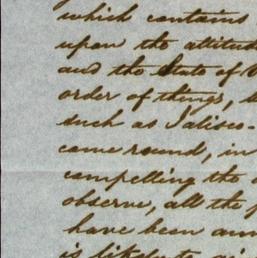 which contains
upon the attitud
and the State of
order of things,
such as Jalisco-
came round, in
compelling the
observe, all the
have been ann
is likely to